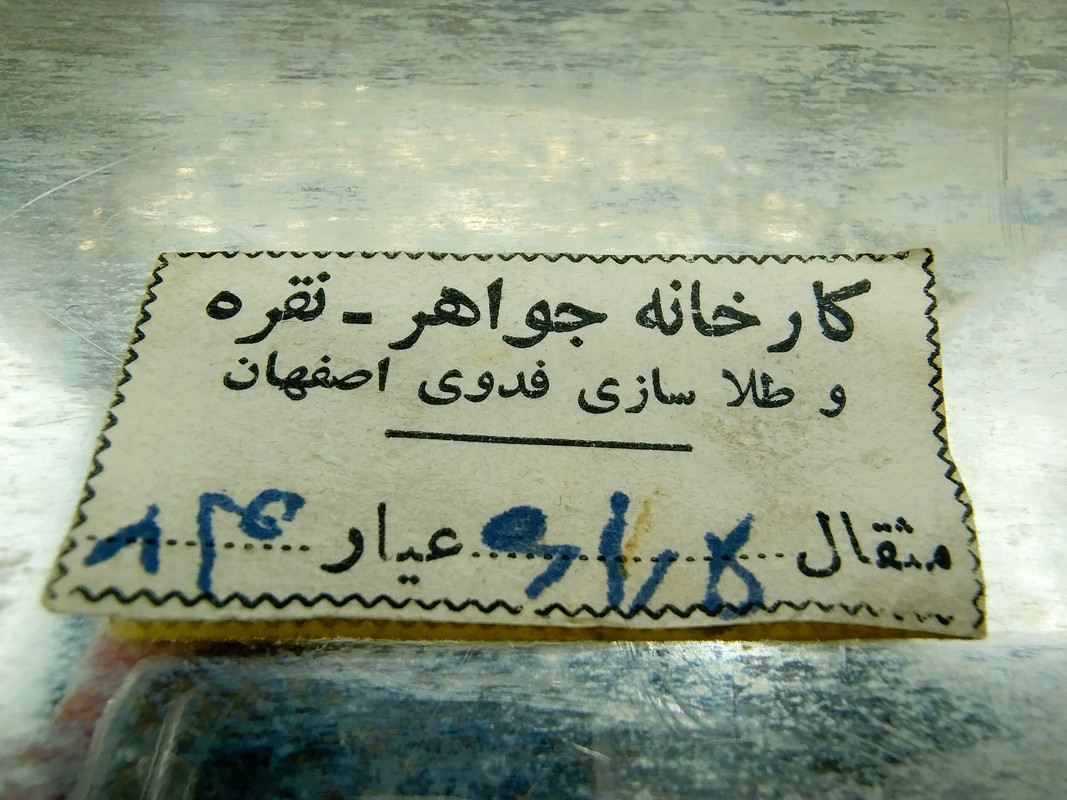 کارخانه جواهر - نقره
و طلا سازی فدوی اصفهان
مثقال ........ عیار ........